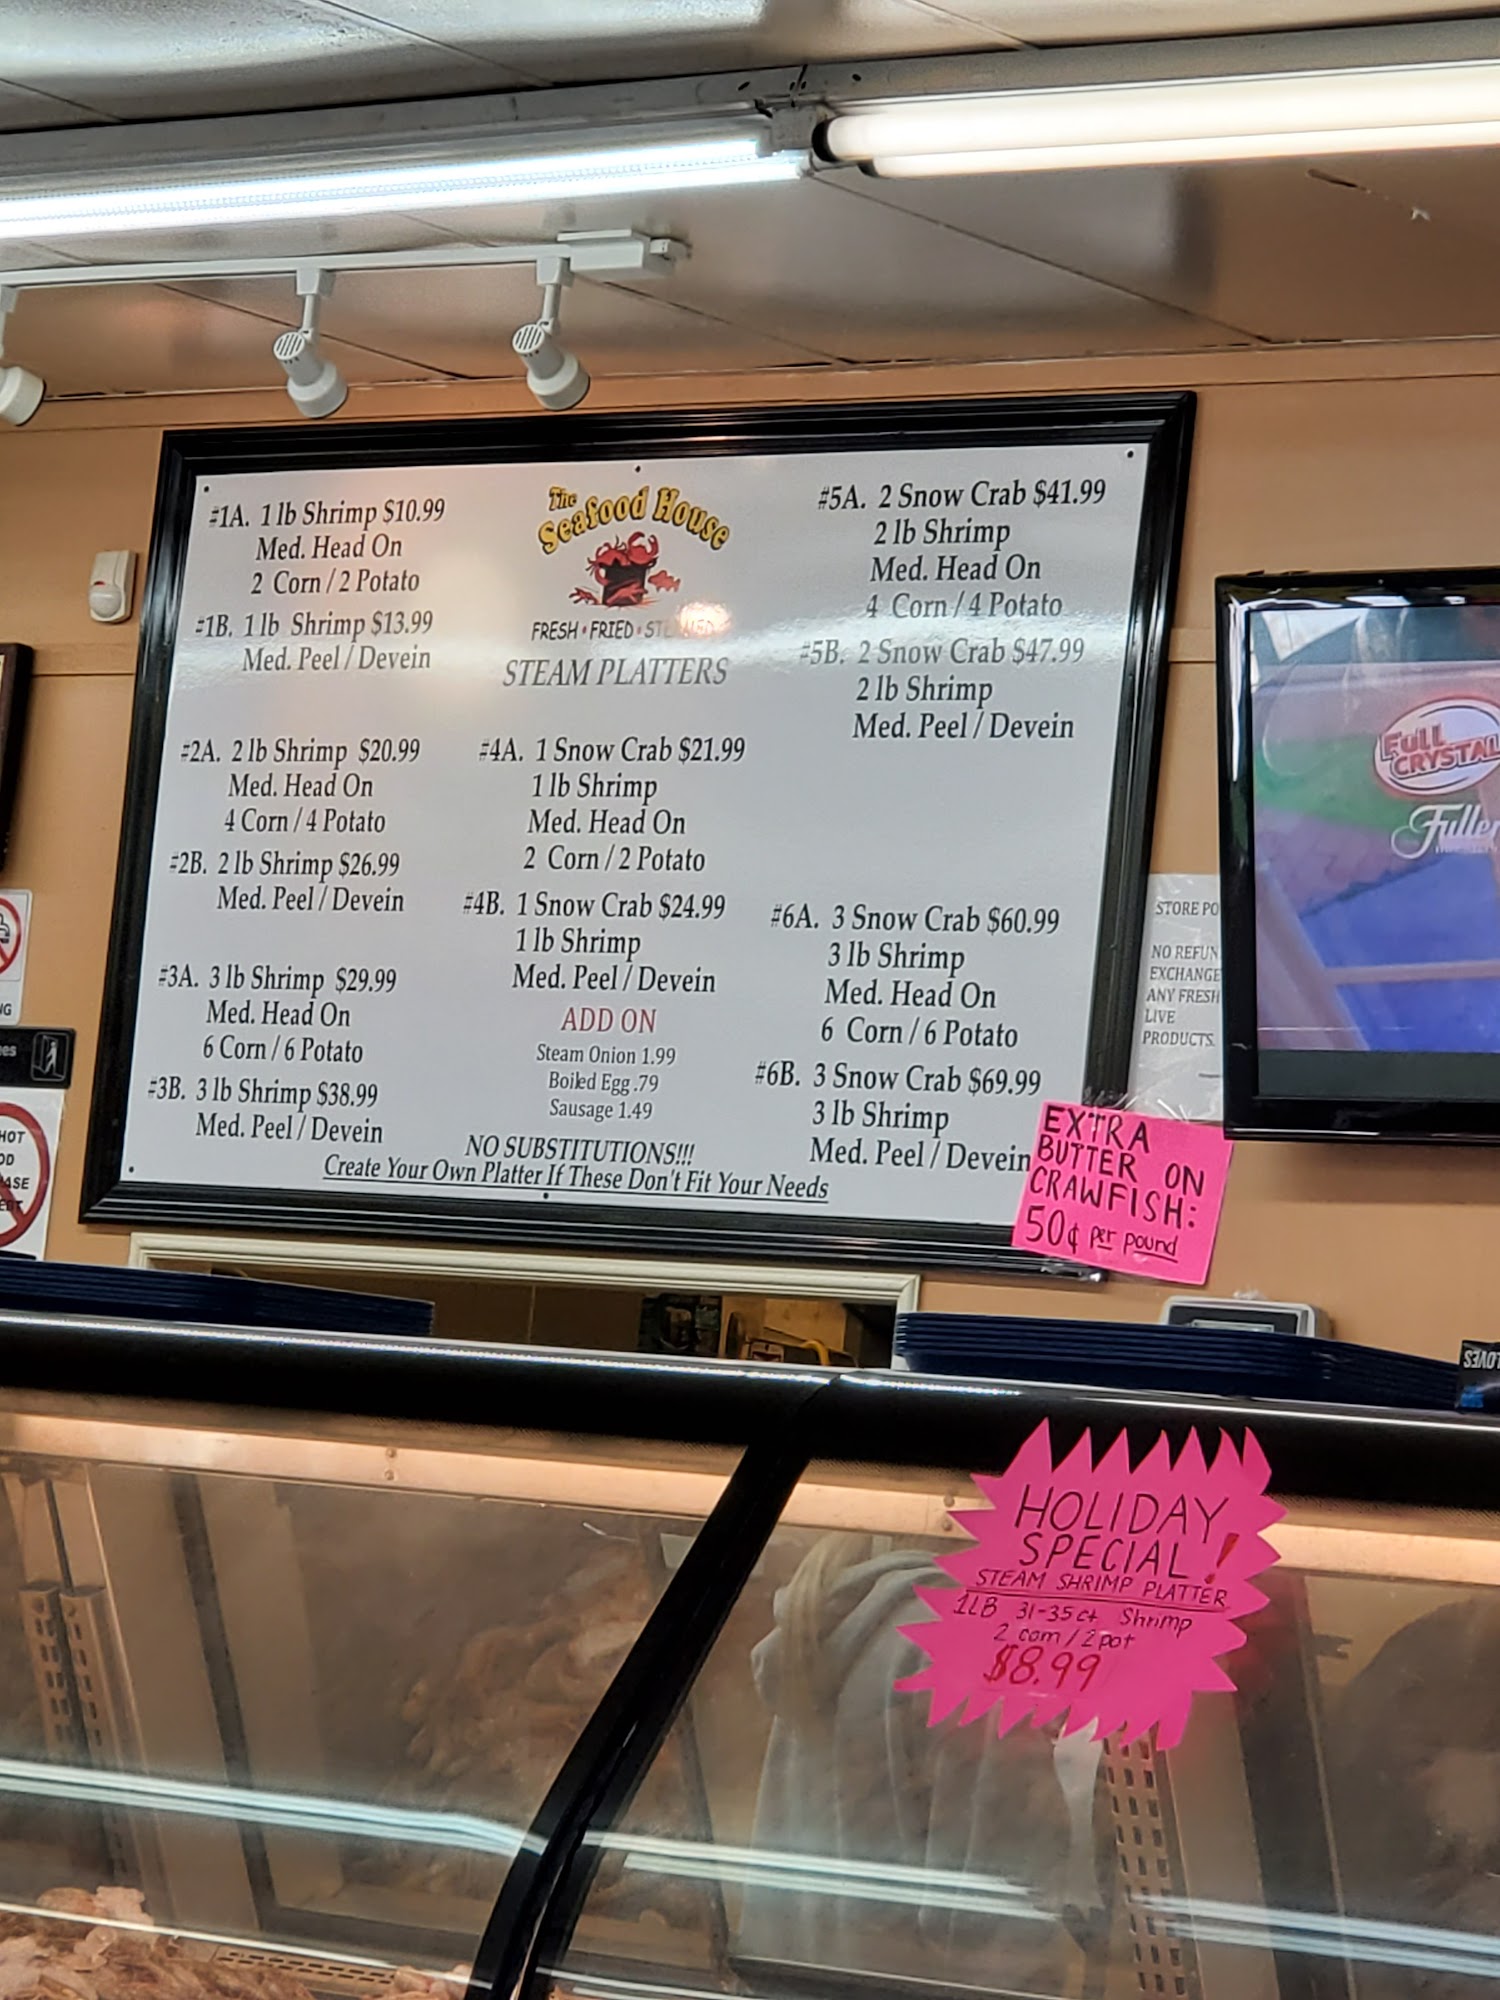 #1A. 1 lb Shrimp $10.99
Med. Head On
2 Corn / 2 Potato
#1B. 1 lb Shrimp $13.99
Med. Peel / Devein
#2A. 2 lb Shrimp $20.99
Med. Head On
4 Corn / 4 Potato
#2B. 2 lb Shrimp $26.99
Med. Peel / Devein
#3A. 3 lb Shrimp $29.99
Med. Head On
6 Corn / 6 Potato
#3B. 3 lb Shrimp $38.99
Med. Peel / Devein
The
Seafood House
FRESH • FRIED • STEAMED
STEAM PLATTERS
#4A. 1 Snow Crab $21.99
1 lb Shrimp
Med. Head On
2 Corn / 2 Potato
#4B. 1 Snow Crab $24.99
1 lb Shrimp
Med. Peel / Devein
ADD ON
Steam Onion 1.99
Boiled Egg .79
Sausage 1.49
NO SUBSTITUTIONS!!!
Create Your Own Platter If These Don't Fit Your Needs
#5A. 2 Snow Crab $41.99
2 lb Shrimp
Med. Head On
4 Corn / 4 Potato
#5B. 2 Snow Crab $47.99
2 lb Shrimp
Med. Peel / Devein
#6A. 3 Snow Crab $60.99
3 lb Shrimp
Med. Head On
6 Corn / 6 Potato
#6B. 3 Snow Crab $69.99
3 lb Shrimp
Med. Peel / Devein
EXTRA
BUTTER ON
CRAWFISH:
50¢ per pound
STORE PO
NO REFUN
EXCHANGE
ANY FRESH
LIVE
PRODUCTS.
FULL
CRYSTAL
Fuller
HOLIDAY
SPECIAL!
STEAM SHRIMP PLATTER
1LB 31-35ct Shrimp
2 corn / 2 pot
$8.99
HOT
OD
ASE
GLOVES